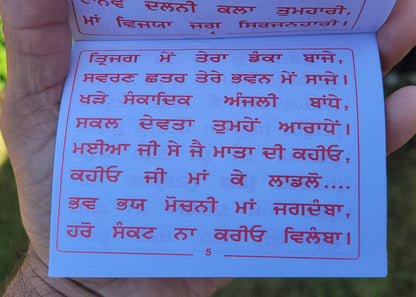 ਦਾਨਵ ਦਲਨੀ ਕਲਾ ਤੁਮਹਾਰੀ।
ਮਾਂ ਵਿਜਯਾ ਜਗ ਸਿਰਜਨਹਾਰੀ।
4
ਤ੍ਰਿਜਗ ਮੇਂ ਤੇਰਾ ਡੰਕਾ ਬਾਜੇ,
ਸਵਰਣ ਛਤਰ ਤੇਰੇ ਭਵਨ ਮੇਂ ਸਾਜੇ।
ਖੜੇ ਸੰਕਾਦਿਕ ਅੰਜਲੀ ਬਾਂਧੇ,
ਸਕਲ ਦੇਵਤਾ ਤੁਮਹੇਂ ਆਰਾਧੇਂ।
ਮਈਆ ਜੀ ਸੇ ਜੈ ਮਾਤਾ ਦੀ ਕਹੀਓ,
ਕਹੀਓ ਜੀ ਮਾਂ ਕੇ ਲਾਡਲੋ....
ਭਵ ਭਯ ਮੋਚਨੀ ਮਾਂ ਜਗਦੰਬਾ,
ਹਰੋ ਸੰਕਟ ਨਾ ਕਰੀਓ ਵਿਲੰਬਾ।
5